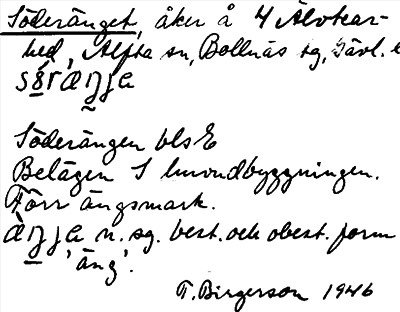 Söderänget, åker å 4 Älvkar-
hed, Alfta sn, Bollnäs sg, Gävl. l
Söderängen bls E
Belägen S huvudbyggningen.
Förr ängsmark.
n. sg. best. och obest. form
'äng'.
T. Birgerson 1946